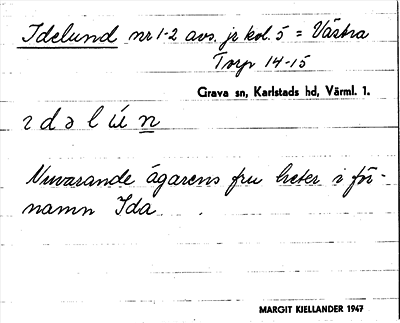 Idelund nr 1-2 avs. jr kol. 5 = Västra
Torp 14-15
Grava sn, Karlstads hd, Värml. 1.
ı d ə l ú n
Nuvarande ägarens fru heter i för-
namn Ida.
MARGIT KJELLANDER 1947